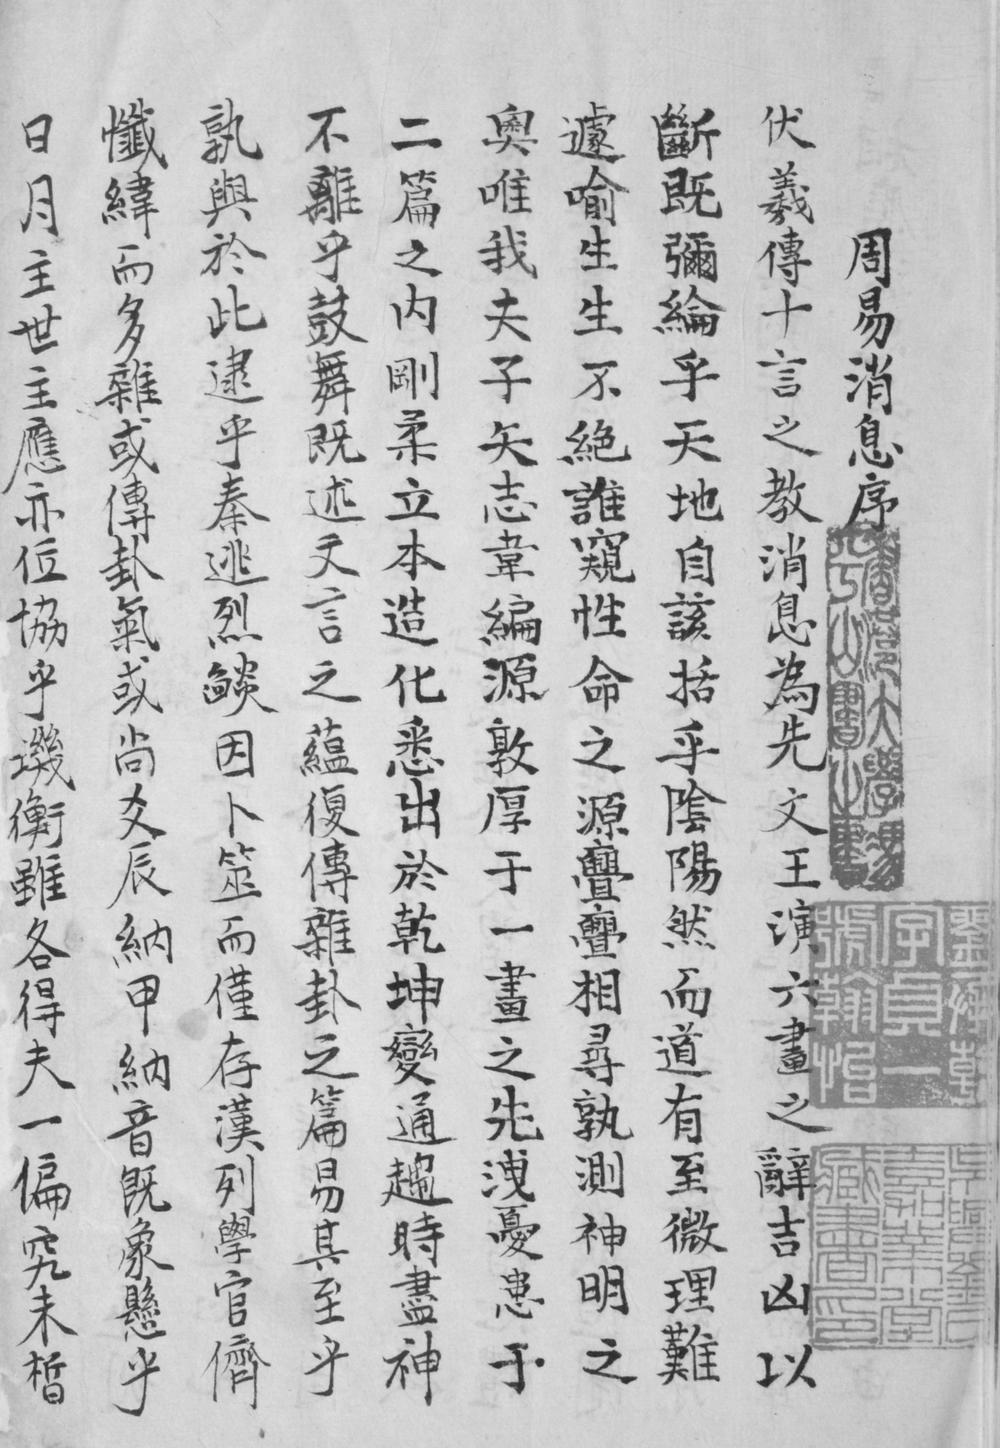 周易消息序
伏羲傳十言之教消息為先文王演六畫之辭吉凶以
斷既彌綸乎天地自該括乎陰陽然而道有至微理難
遽喻生生不絶誰窺性命之源亹亹相尋孰測神明之
奧唯我夫子矢志韋編源敦厚于一畫之先洩憂患于
二篇之内剛柔立本造化悉出於乾坤變通趨時盡神
不離乎鼓舞既述文言之蘊復傳雜卦之篇易其至乎
孰與於此逮乎秦逃烈燄因卜筮而僅存漢列學官儕
懺緯而多雜或傳卦氣或尚爻辰納甲納音既象懸乎
日月主世主應亦位協乎璣衡雖各得夫一偏究未晳
劉承幹
字貞一
號翰怡
吳興劉氏
嘉業堂
藏書印